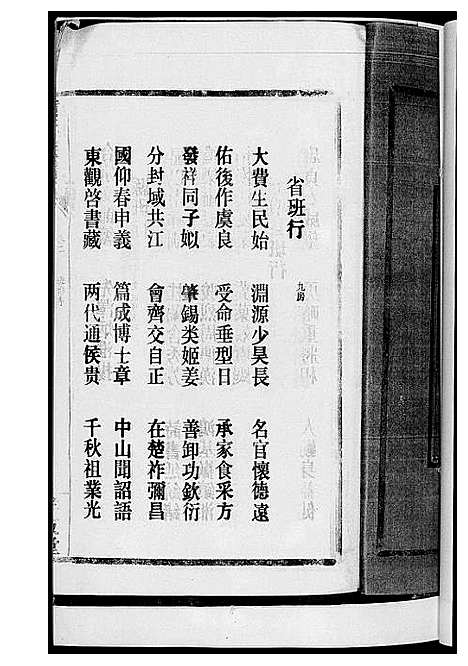 省班行
九房
大費生民始 淵源少昊長 名官懷德遠
佑後作虞良 受命垂型日 承家食采方
發祥同子姒 肇錫类姬姜 善卸功欽衍
分封域共江 會齊交自正 在楚祚彌昌
國仰春申義 篇成博士章 中山聞詔語
東觀啓書藏 两代通侯贵 千秋祖業光